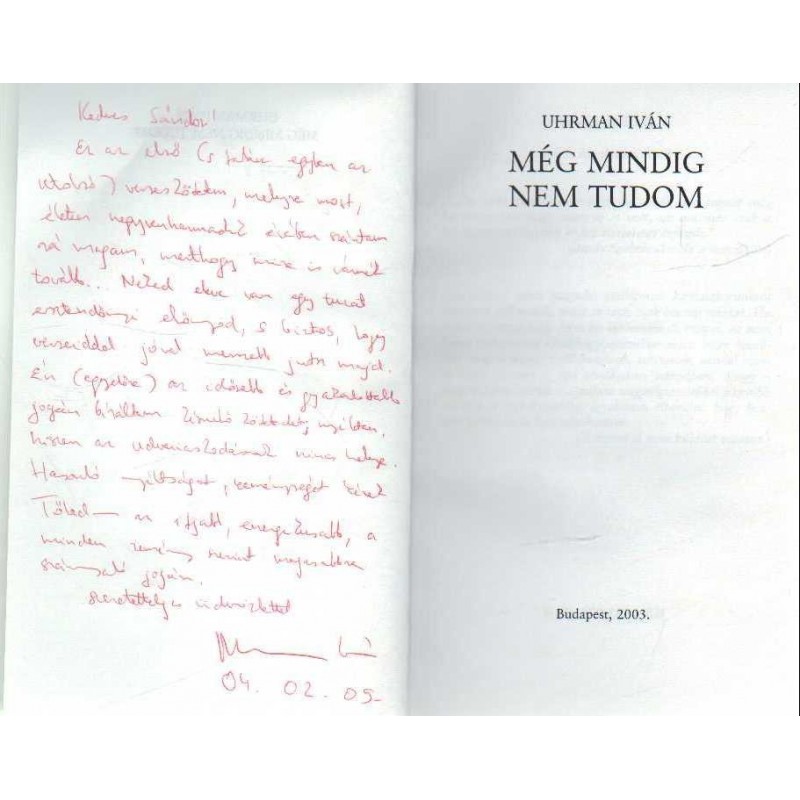 Kedves Sándor!
Ez az első (s talán egyben az
utolsó) verseskötetem, melyre most,
életem negyvenharmadik évében szántam
rá magam, merthogy mire is várnék
tovább... Neked eleve van egy tucat
esztendőnyi előnyöd, s biztos, hogy
verseiddel jóval messzebb jutsz majd.
Én (egyelőre) az idősebb és gyakorlottabb
jogán bíráltam készülő kötetedet, nyíltan,
hiszen az udvariaskodásnak nincs helye.
Hasonló nyíltságot, keménységet kérek
Tőled — az ifjabb, energikusabb, a
minden remény szerint magasabbra
szárnyaló jogán.
szeretettel, s üdvözlettel
Iván
04. 02. 05.
UHRMAN IVÁN
MÉG MINDIG
NEM TUDOM
Budapest, 2003.